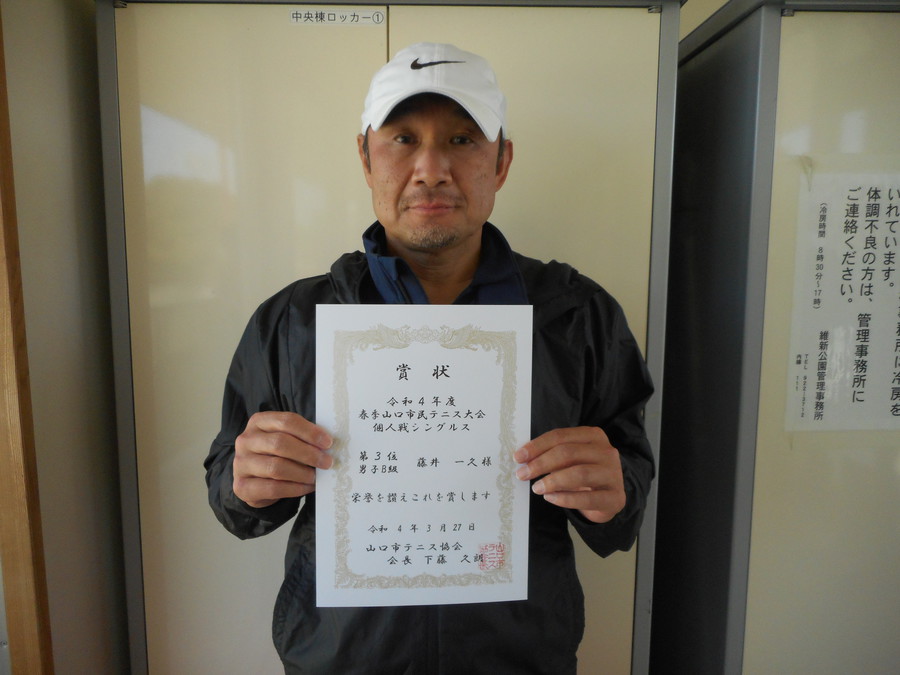 中央棟ロッカー①
賞状
令和4年度
春季山口市民テニス大会
個人戦シングルス
第3位
男子B級
藤井 一久様
栄誉を讃えこれを賞します
令和4年3月27日
山口市テニス協会
会長 下藤 久朗
いれています。
体調不良の方は、管理事務所に
ご連絡ください。
(冷房時間 8時30分~17時)
維新公園管理事務所